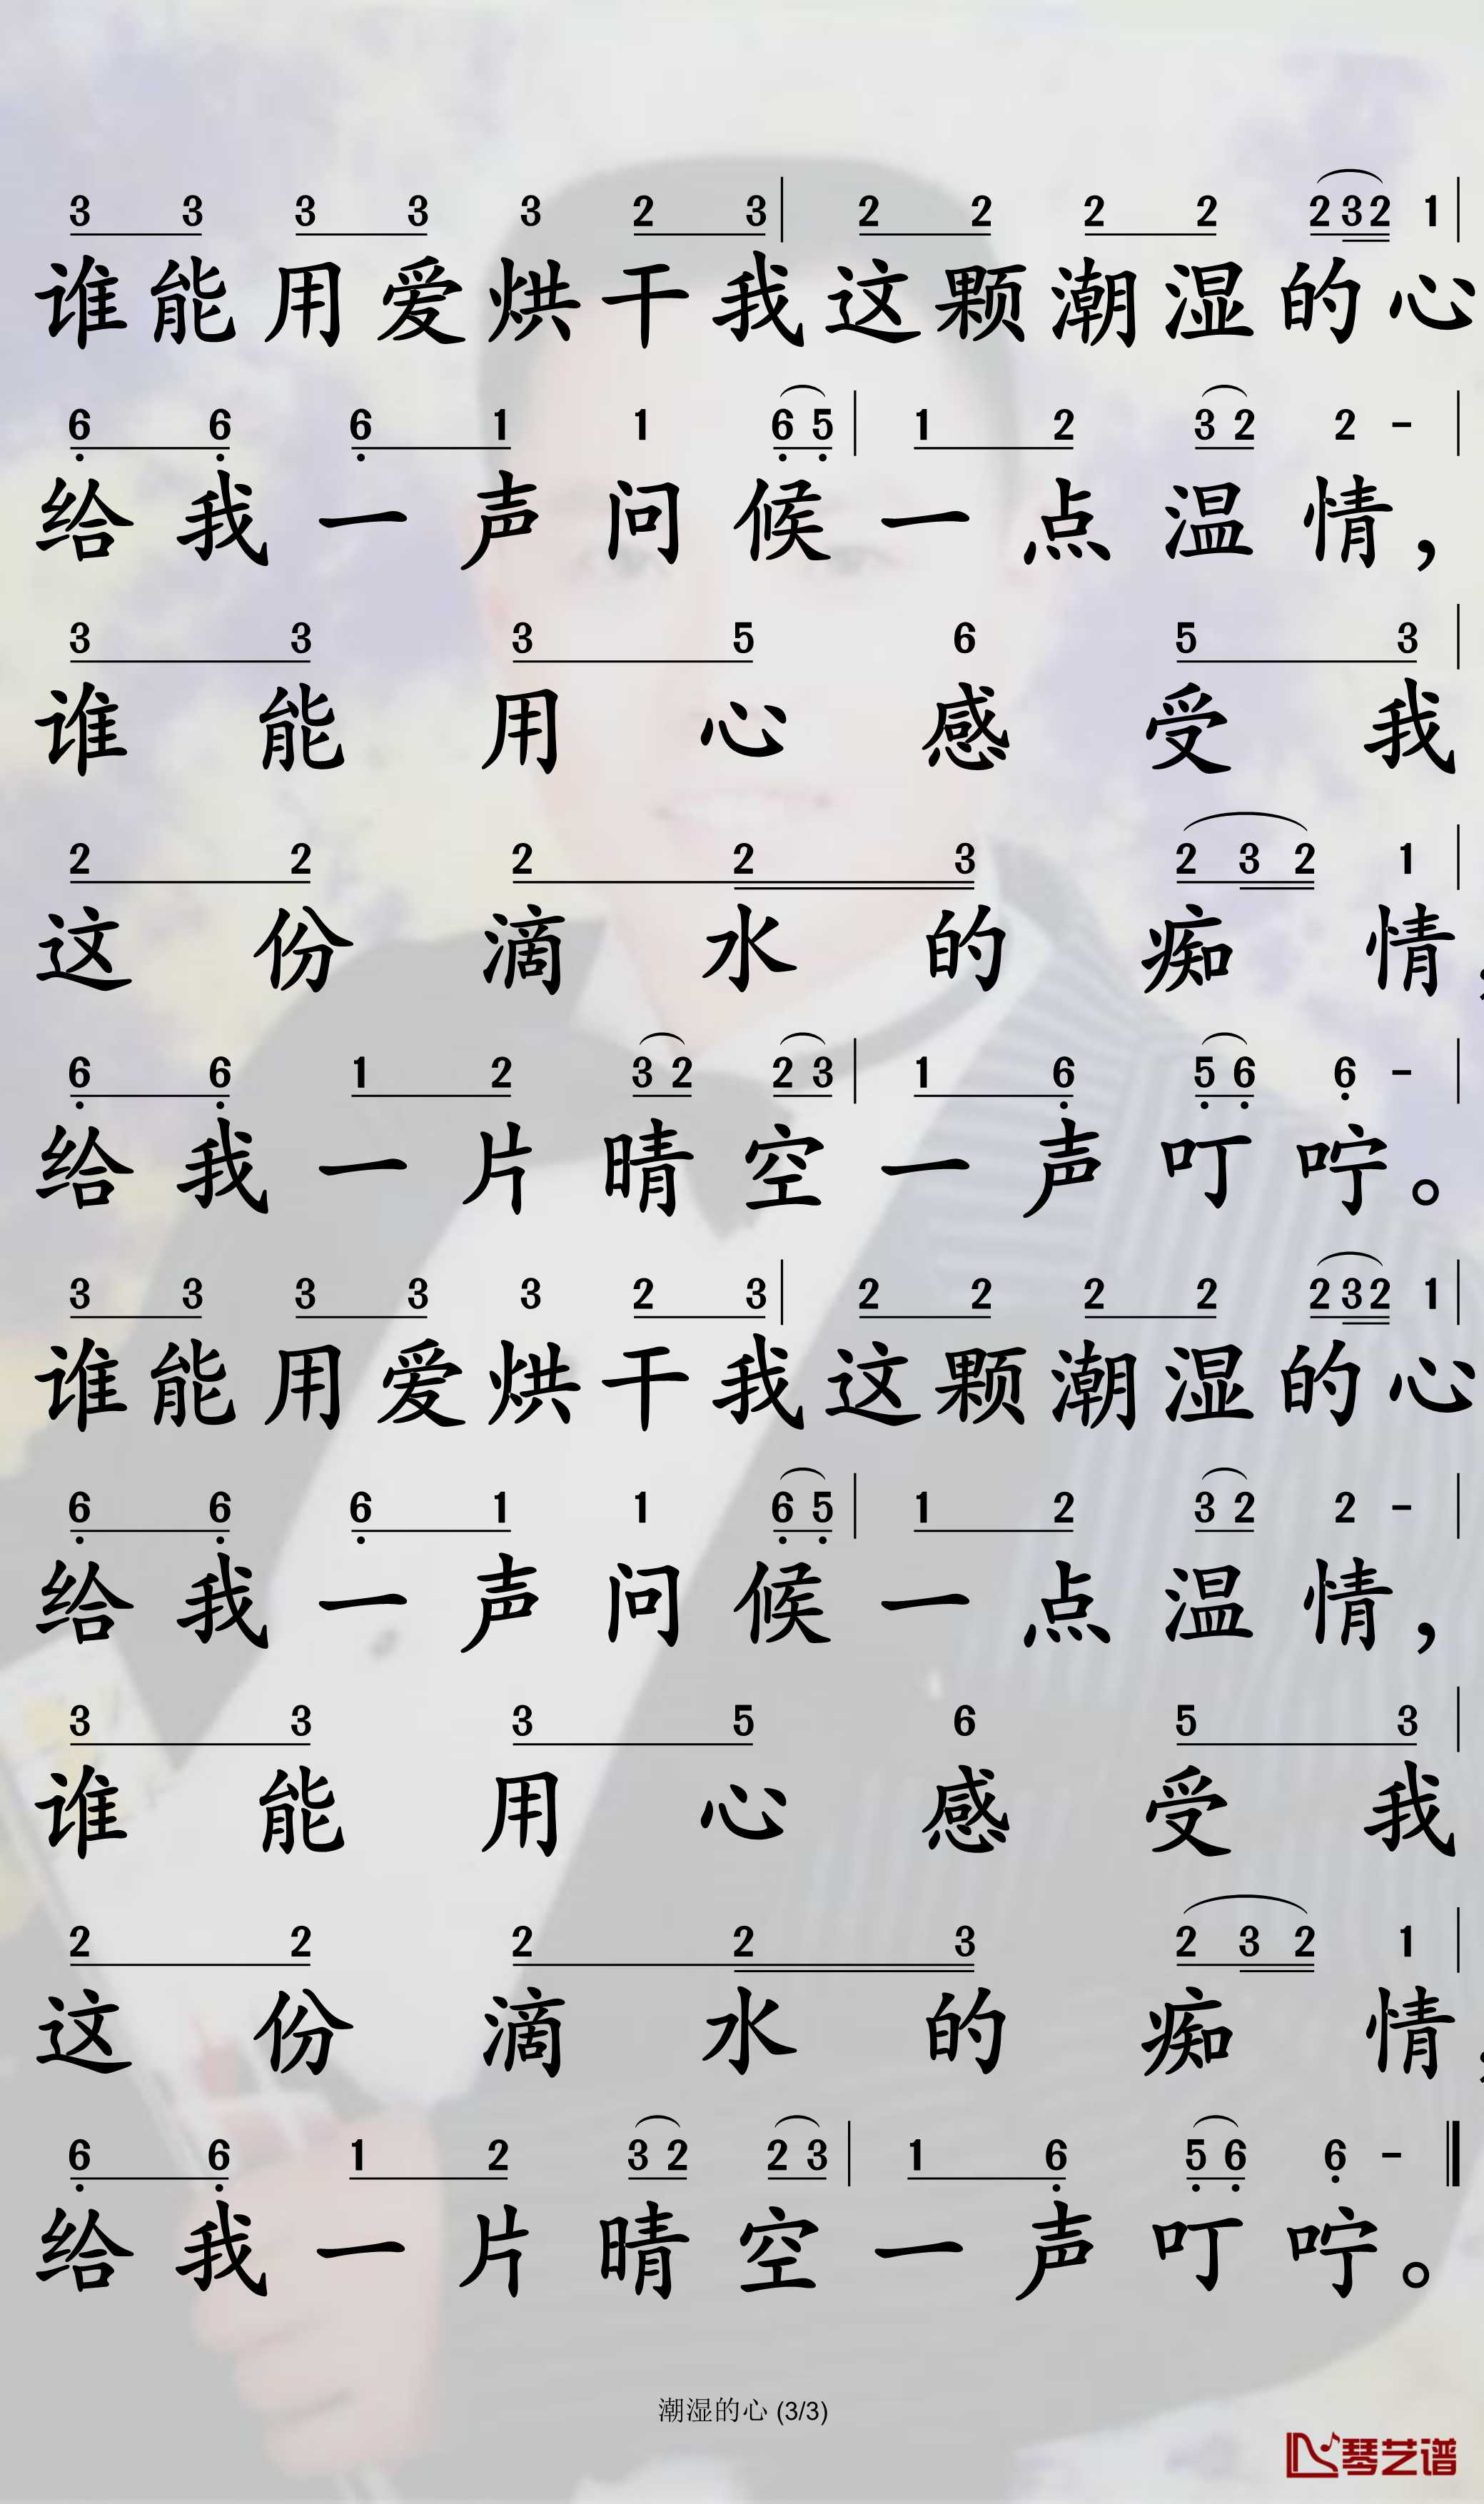 3 3 3 3 3 2 3 | 2 2 2 2 2 3 2 1 |
谁能用爱烘干我这颗潮湿的心
6 6 6 1 1 6 5 | 1 2 3 2 2 - |
给我一声问候一点温情，
3 3 3 5 6 5 3 |
谁能用心感受我
2 2 2 2 3 2 3 2 1 |
这份滴水的痴情
6 6 1 2 3 2 2 3 | 1 6 5 6 6 - |
给我一片晴空一声叮咛。
3 3 3 3 3 2 3 | 2 2 2 2 2 3 2 1 |
谁能用爱烘干我这颗潮湿的心
6 6 6 1 1 6 5 | 1 2 3 2 2 - |
给我一声问候一点温情，
3 3 3 5 6 5 3 |
谁能用心感受我
2 2 2 2 3 2 3 2 1 |
这份滴水的痴情
6 6 1 2 3 2 2 3 | 1 6 5 6 6 - ‖
给我一片晴空一声叮咛。
潮湿的心 (3/3)
琴艺谱